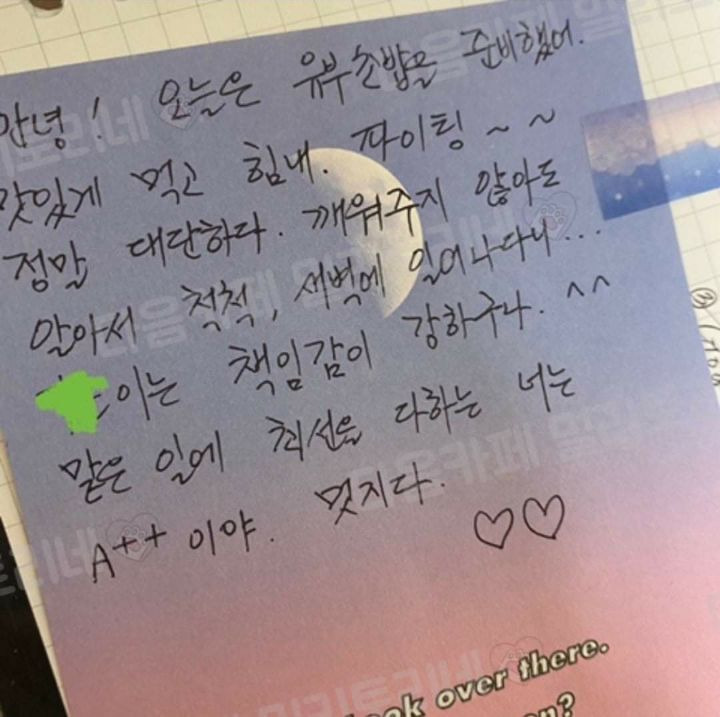 안녕! 오늘은 유부초밥을 준비했어.
맛있게 먹고 힘내. 파이팅~~
정말 대단하다. 깨워주지 않아도
알아서 척척, 새벽에 일어나다니...
이는 책임감이 강하구나. ^^
맡은 일에 최선을 다하는 너는
A++이야. 멋지다.
♡♡
over there.